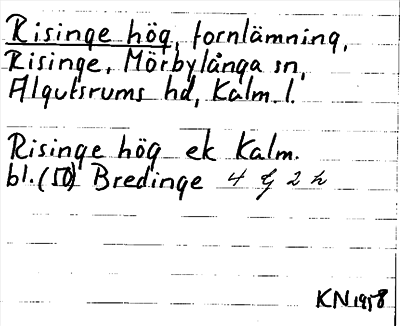 Risinge hög, fornlämning,
Risinge, Mörbylånga sn,
Algutsrums hd, Kalm. l.
Risinge hög ek Kalm.
bl. (50) Bredinge 4 g 2 h
KN 1958